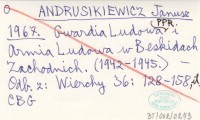 O ANDRUSIKIEWICZ Janusz
PPR.
1967. Gwardia Ludowa i
Armia Ludowa w Beskidach
Zachodnich. (1942-1945). -
Odb. z: Wierchy 36: 128-158,
CBG